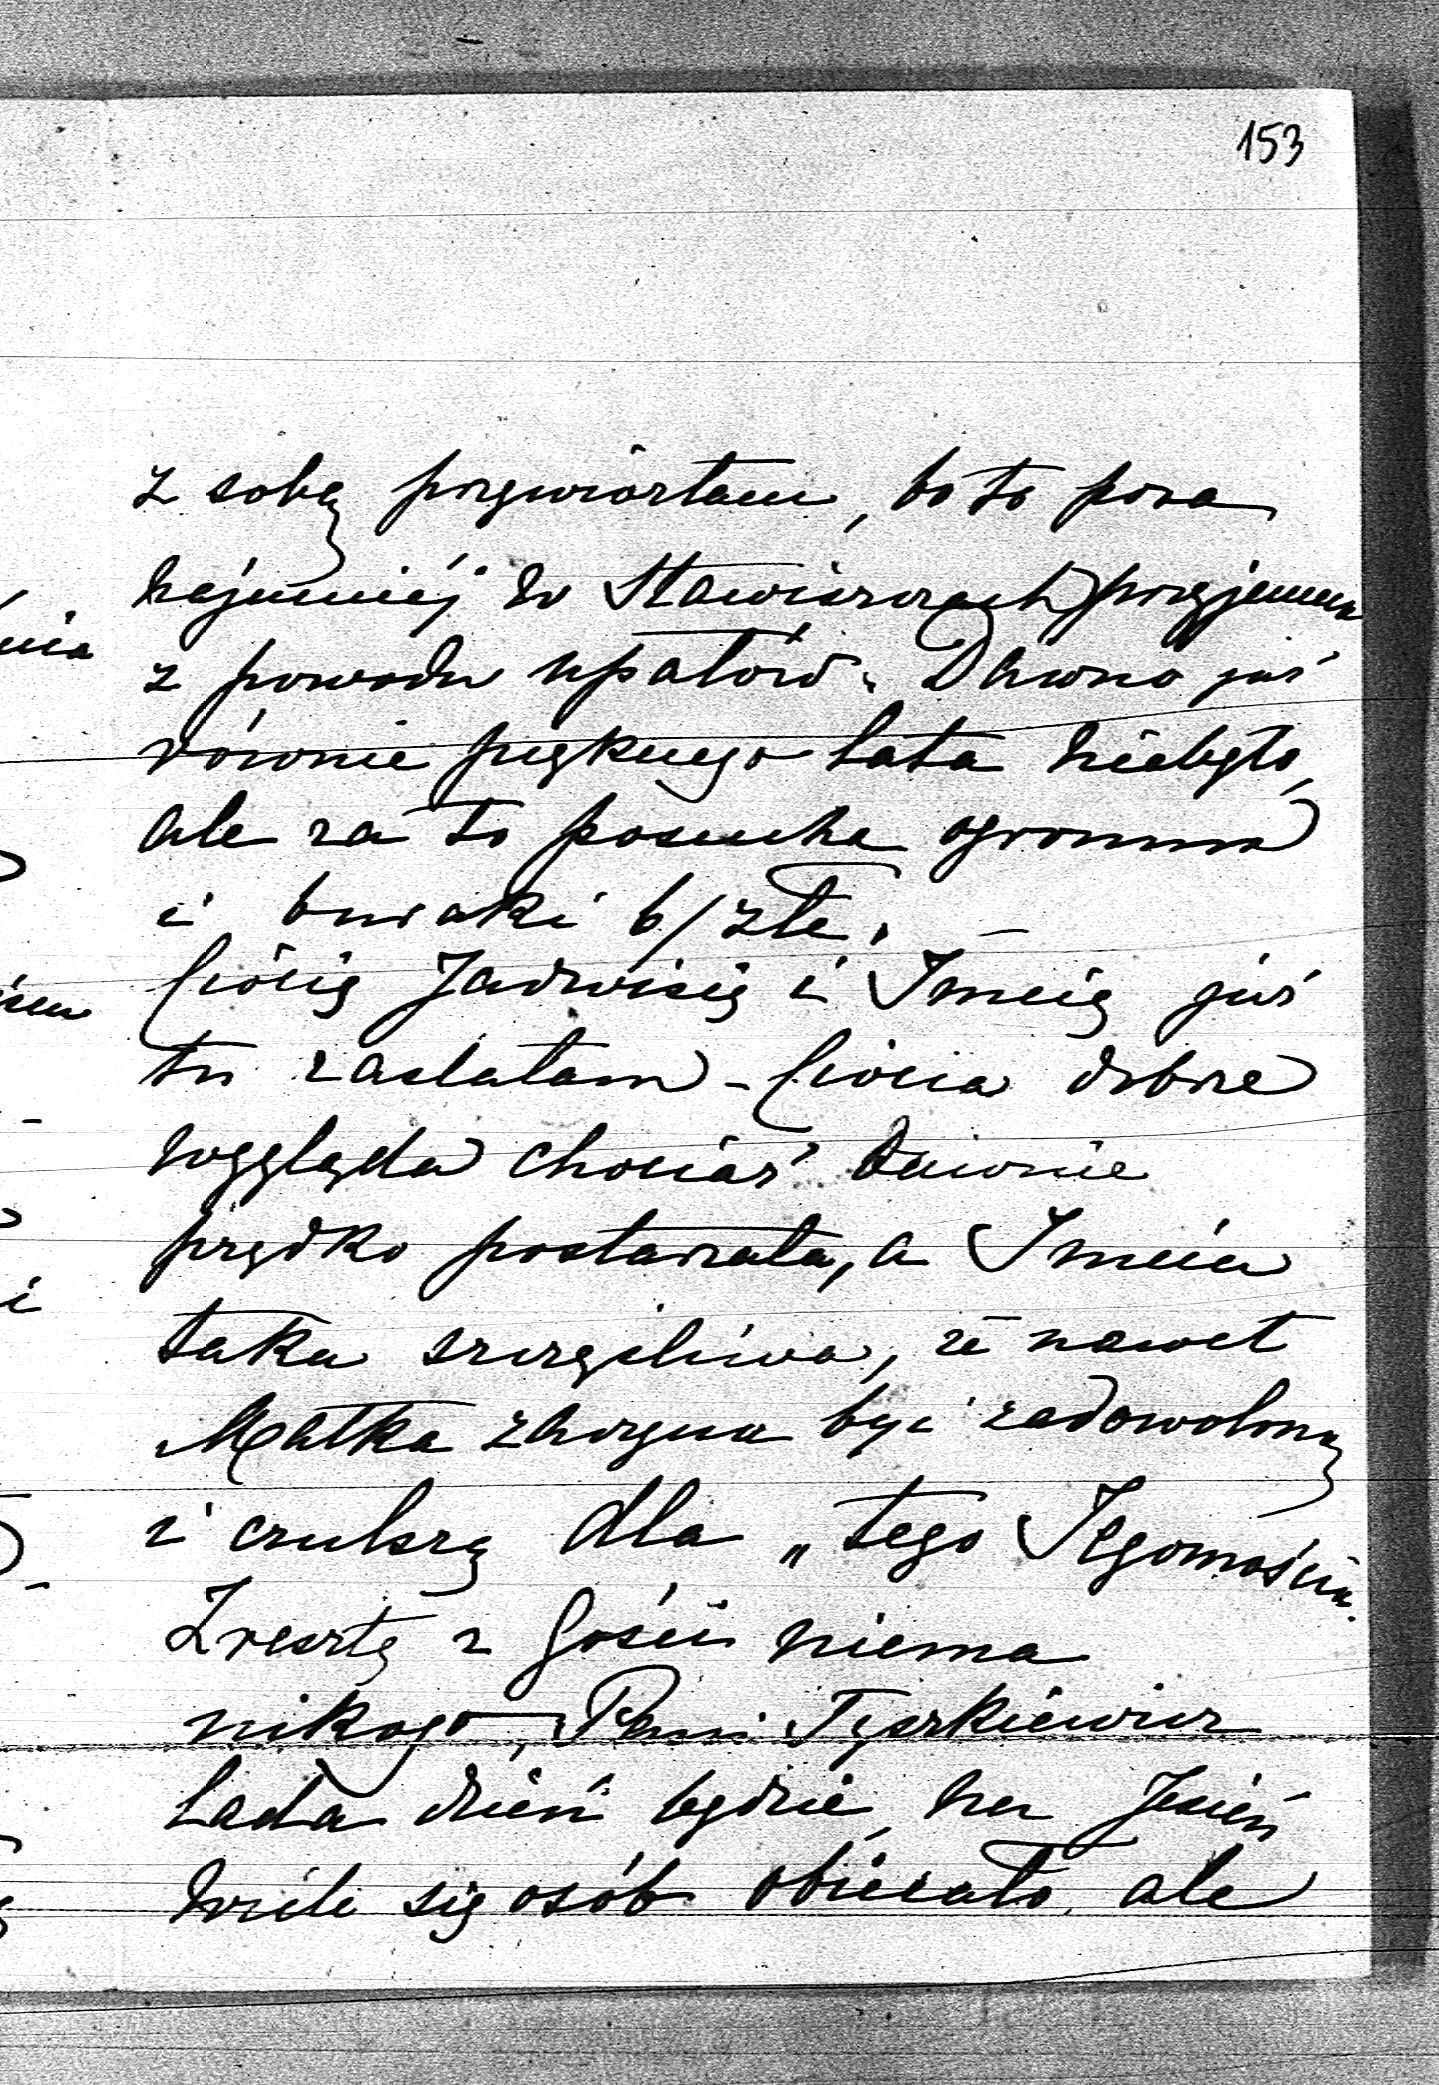 153
z sobą przywiozłam, bo to pora
najmniéj w Stawiszczach przyjemna
z powodu upałów. Dawno już
równie pięknego lata niebyło,
ale za to posucha ogromna
i buraki b/złe.
Ciocię Jadwisię i Imcię już
tu zastałam – Ciocia dobrze
wygląda chociaż dziwnie
prędko postarzała, a Imcia
taka szczęśliwa, że nawet
Matka zaczyna być zadowoloną
i czulszą dla „tego Jegomościa.
Zresztą z Gości niema
nikogo, Pani Tyszkiewicz
lada dzień będzie, na Jesień
wiele się osób obierało, ale